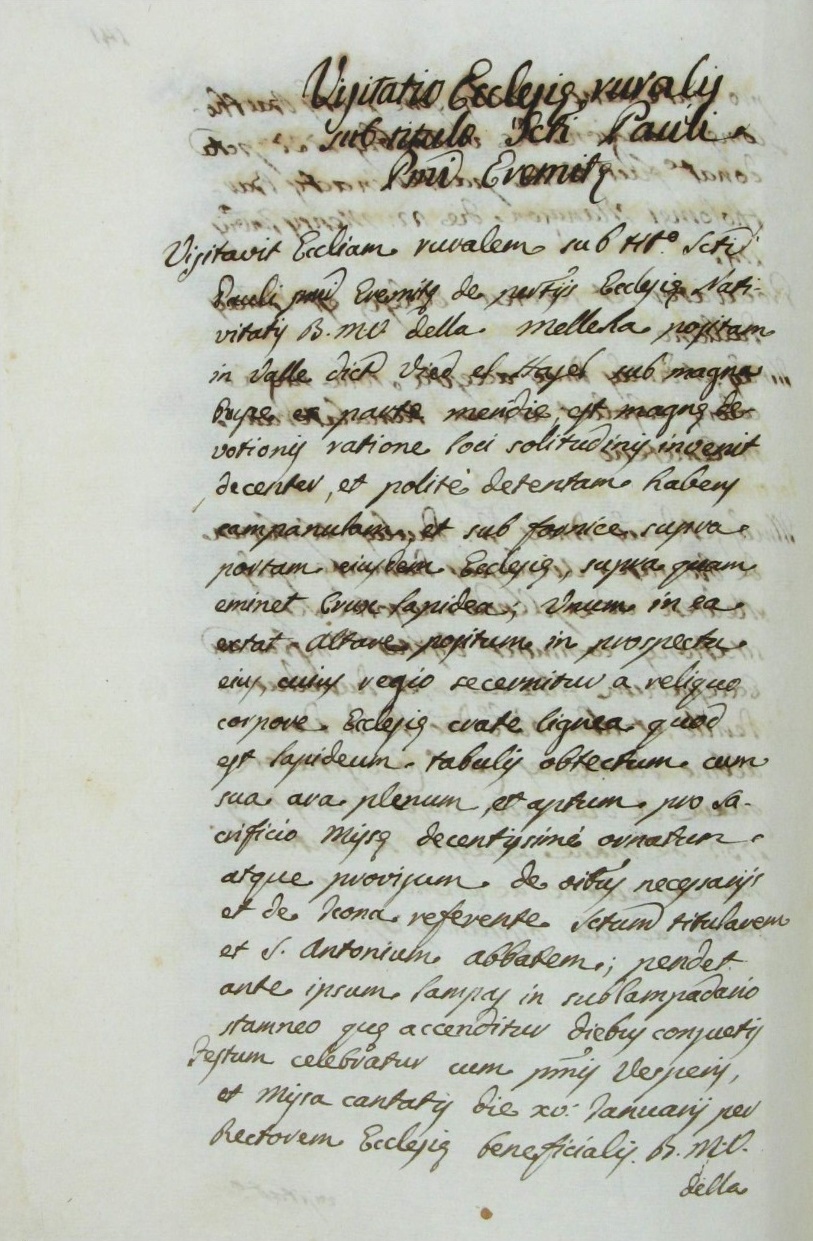 Visitatio Ecclesię ruralis
sub titulo Scti Pauli
Pmi Eremitę
Visitavit Eccliam ruralem sub titº Scti
Pauli pmi Eremitę de pertijs Ecclesię Nati-
vitatis B.M.V. della Melleha positam
in Valle dict Vied el Hasel sub magna
rupe ex parte meridie, est magnę de-
votionis ratione loci solitudinis, invenit
decenter, et politè detentam habens
campanulam, et sub fornice supra
portam eiusdem Ecclesię, supra quam
eminet Crux lapidea; Vnum in ea
extat Altare positum in prospectu
eius, cuius regio secernitur a reliquo
corpore Ecclesię crate lignea quod
est lapideum tabulis obtectum cum
sua ara plenum, et aptum pro Sa-
crificio Missę decentissimè ornatum
atque provisum de oibus necessarijs
et de Icona referente Sctum titularem
et S. Antonium abbatem; pendet
ante ipsum lampas in sublampadario
stamneo quę accenditur diebus consuetis
Festum celebratur cum pmis Vesperis,
et Missa cantatis die xv: Januarij per
Rectorem Ecclesię beneficialis B.M.V.
della